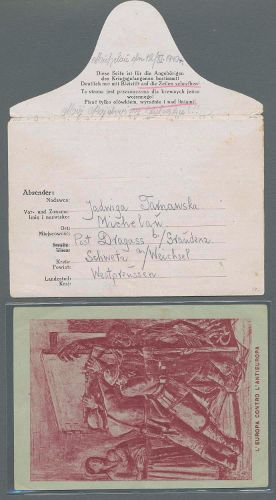 Diese Seite ist für die Angehörigen
des Kriegsgefangenen bestimmt!
Deutlich nur mit Bleistift auf die Zeilen schreiben!
Ta strona jest przeznaczona dla krewnych jeńca
wojennego!
Pisać tylko ołówkiem, wyraźnie i na liniami
Absender:
Nadawca:
Vor- und Zuname:
Imię i nazwisko:
Jadwiga Tarnawska
Ort:
Miejscowość:
Michelau
Straße:
Ulica:
Post Dragass b/ Graudenz
Kreis:
Powiat:
Schwetz a/Weichsel
Landesteil:
Kraj:
Westpreussen
L'EUROPA CONTRO L'ANTIEUROPA